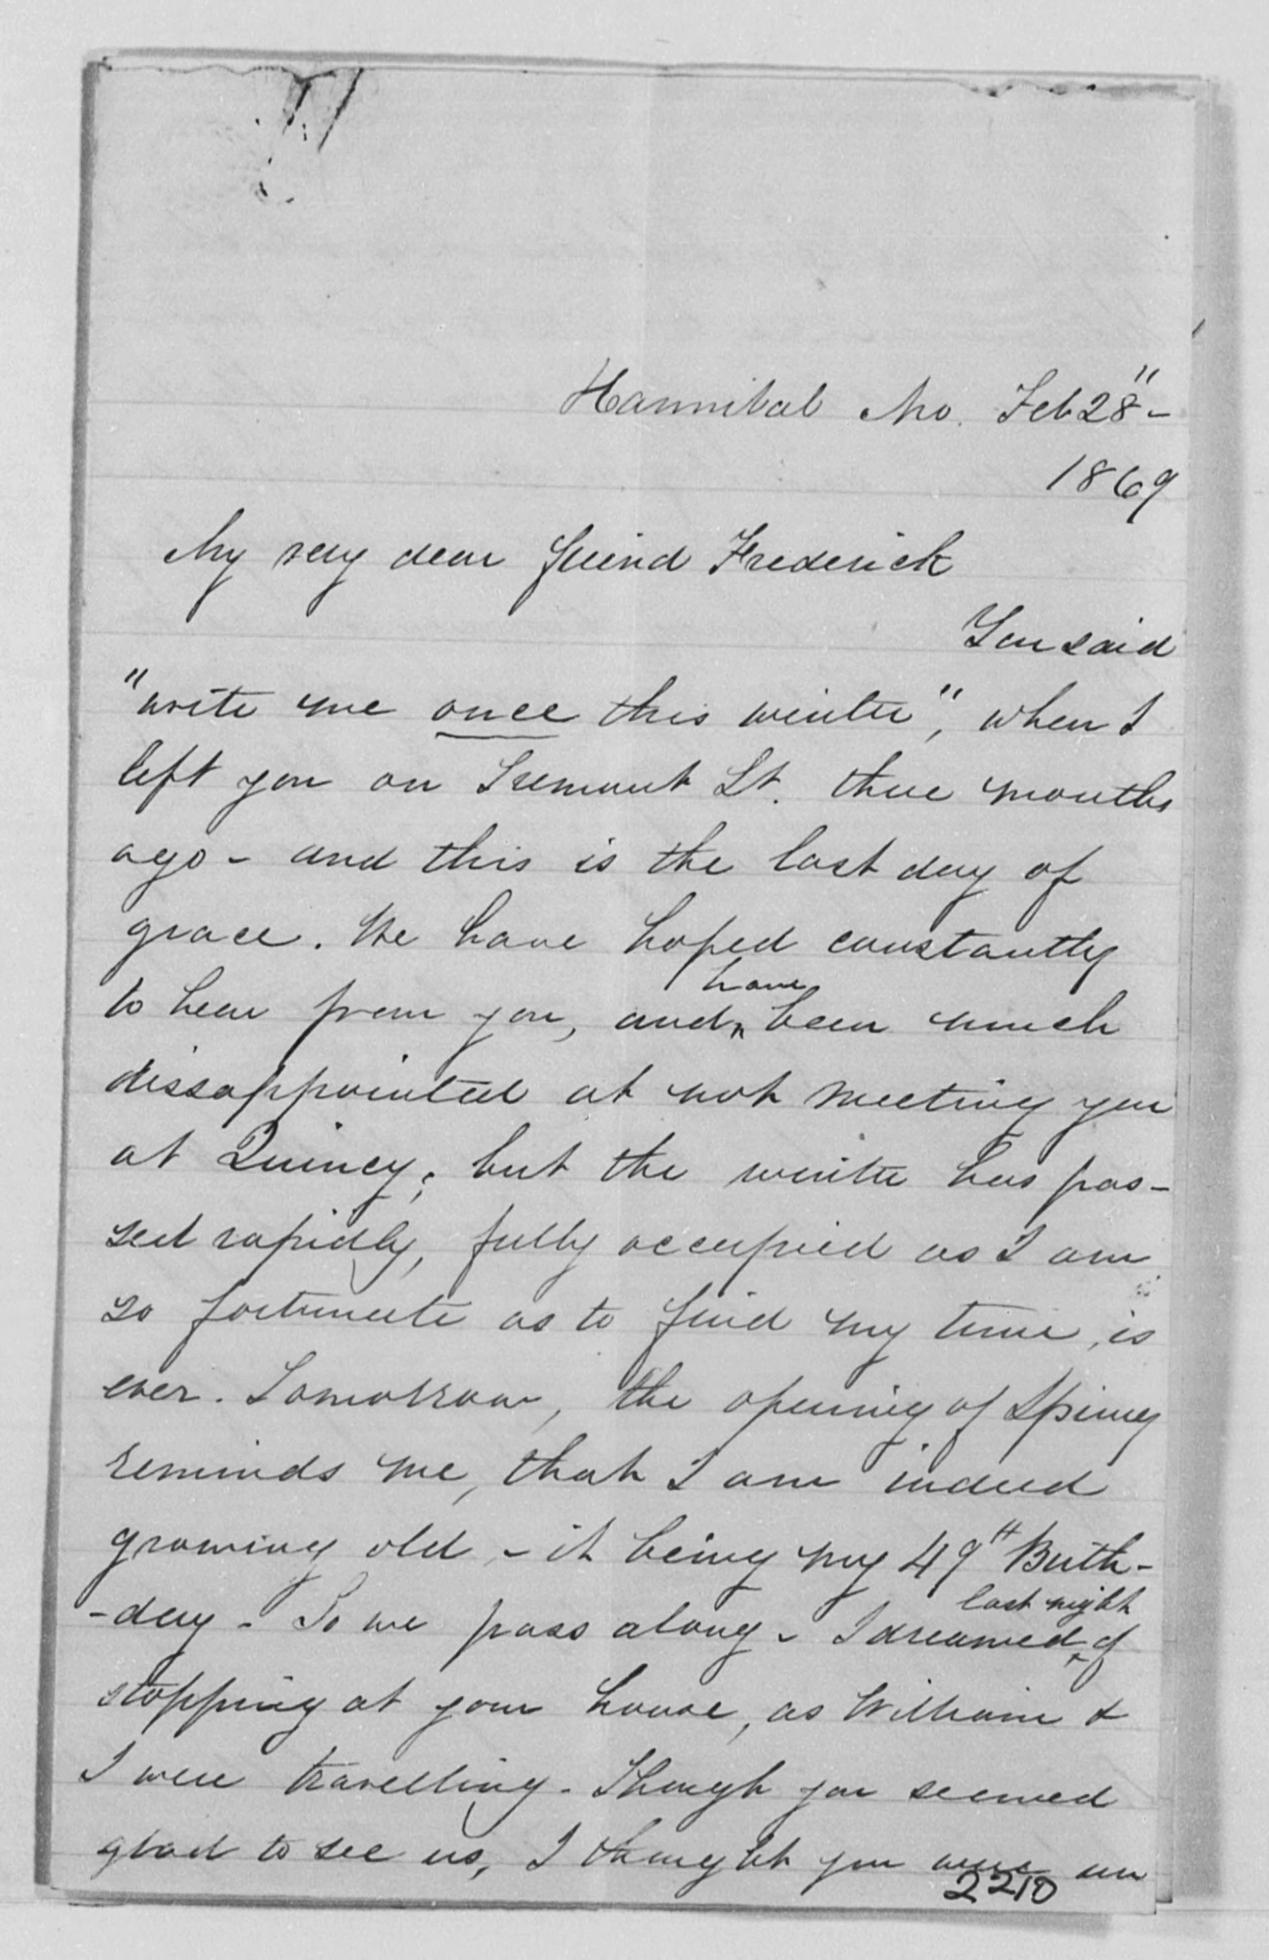 Hannibal Mo. Feb 28" -
1869
My very dear friend Frederick
You said
"write me once this winter", when I
left you on Tremont St. three months
ago - and this is the last day of
grace. We have hoped constantly
to hear from you, and have been much
dissappointed at not meeting you
at Quincy; but the winter has pas-
sed rapidly, fully occupied as I am
so fortunate as to find my time, is
ever. Tomorrow, the opening of Spring
reminds me, that I am indeed
growing old - it being my 49" Birth-
-day - So we pass along - I dreamed last night of
stopping at your house, as William &
I were travelling - Though you seemed
glad to see us, I thought you were un
2210